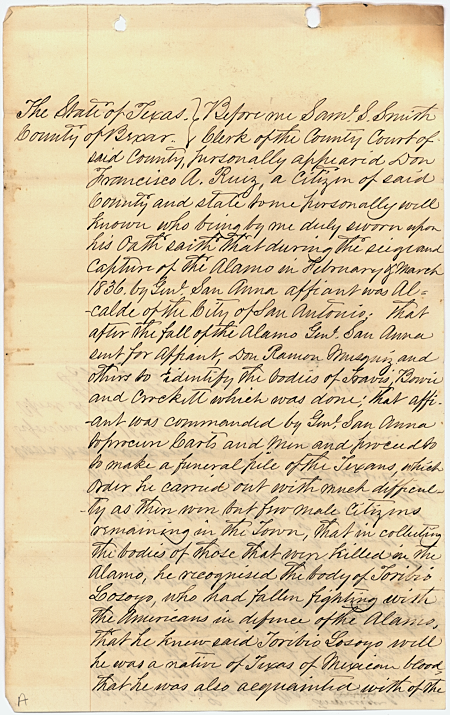 The State of Texas. } Before me Saml. S. Smith
County of Bexar. } Clerk of the County Court of
said County, personally appeared Don
Francisco A. Ruiz, a Citizen of said
County and state to me personally well
known who being by me duly sworn upon
his Oath saith that during the siege and
capture of the Alamo in February & March
1836. by Genl. San Anna affiant was Al-
-calde of the City of San Antonio; that
after the fall of the Alamo Genl. San Anna
sent for affiant, Don Ramon Musquiz, and
others to identify the bodies of Travis, Bowie
and Crockett which was done; that affi-
-ant was commanded by Genl. San Anna
to procure Carts and Men and proceed to
to make a funeral pile of the Texans, which
order he carried out with much difficul-
-ty as there were but few male citizens
remaining in the Town, that in collecting
the bodies of those that were killed in the
Alamo, he recognised the body of Toribio
Losoyo, who had fallen fighting with
the Americans in defence of the Alamo,
that he knew said Toribio Losoyo well
he was a native of Texas of Mexican blood,
that he was also acquainted with of the
A